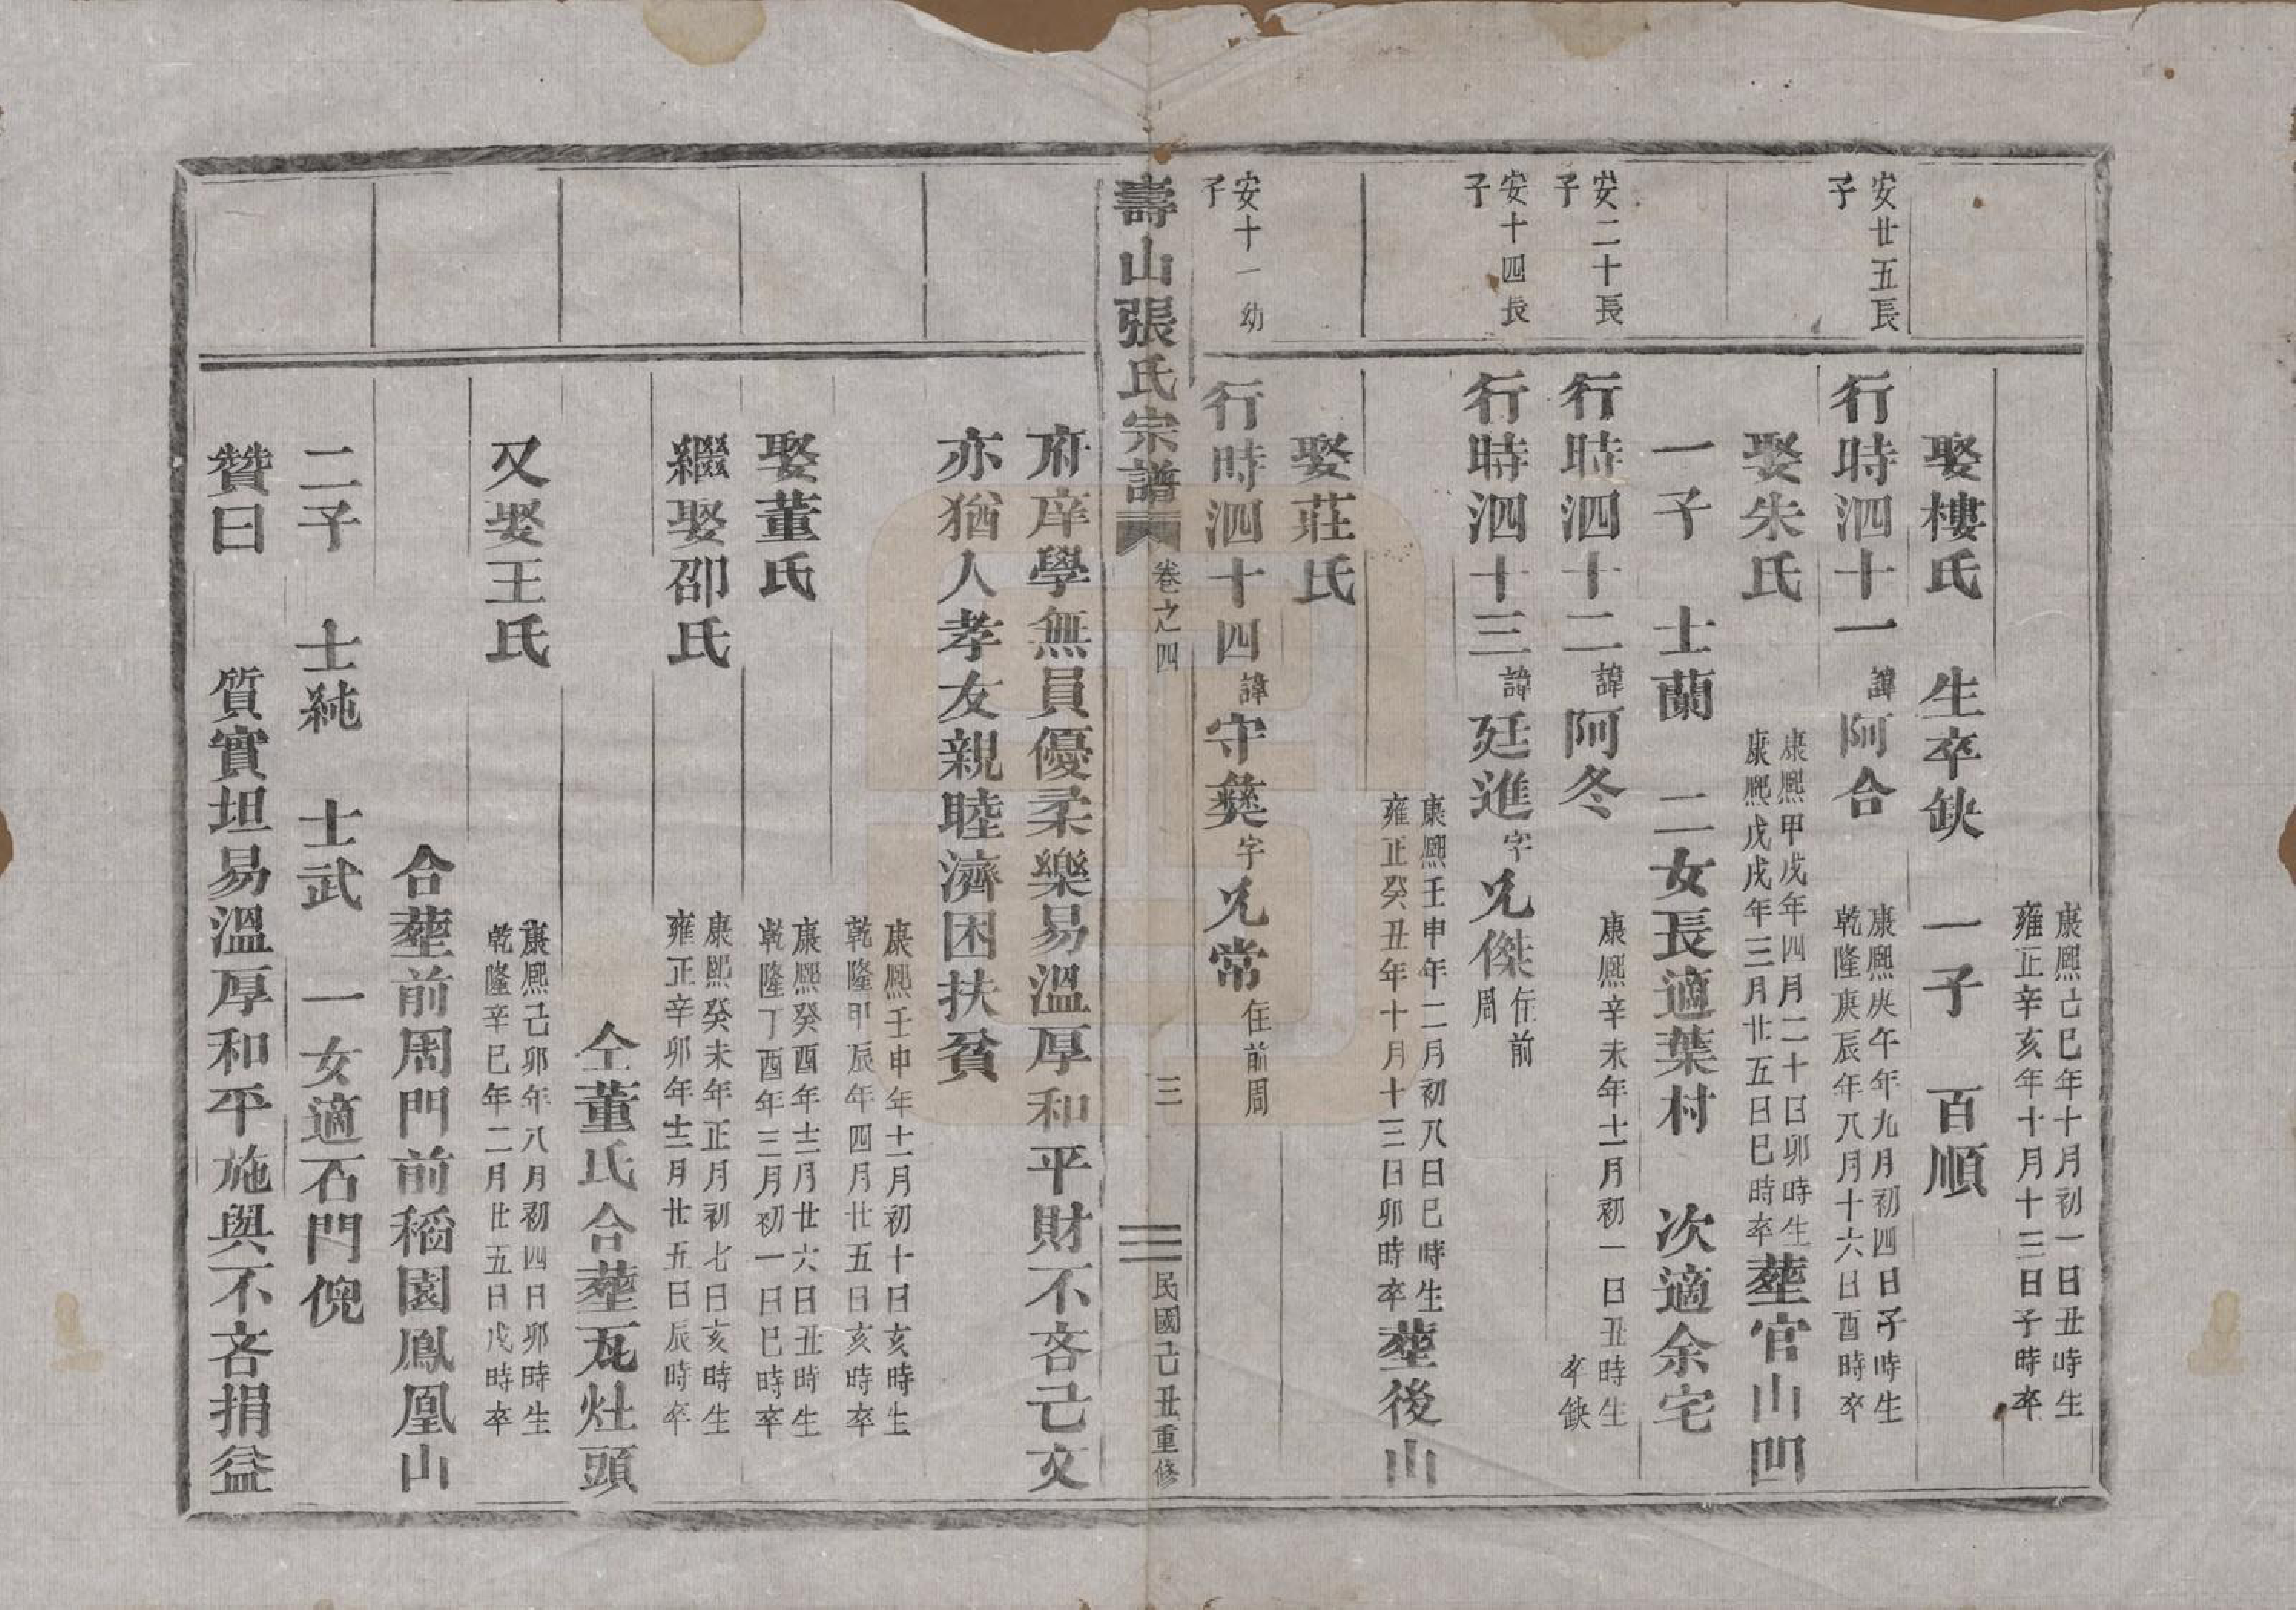 康熙己巳年十月初一日丑時生
雍正辛亥年十月十三日子時卒
娶樓氏 生卒缺 一子 百順
安廿五長子
行時泗十一諱阿合
康熙庚午年九月初四日子時生
乾隆庚辰年八月十六日酉時卒
娶朱氏
康熙甲戌年四月二十日卯時生
康熙戊戌年三月廿五日巳時卒
塟官山凹
一子 士蘭 二女長適葉村 次適余宅
安二十長子
行時泗十二諱阿冬
康熙辛未年十二月初一日丑時生
卒缺
安十四長子
行時泗十三諱廷進字兄傑住前周
康熙壬申年二月初八日巳時生
雍正癸丑年十月十三日卯時卒
塟後山
娶莊氏
安十一幼子
行時泗十四諱守彜字兄常住前周
壽山張氏宗譜 卷之四 三 民國己丑重修
府庠學無員優柔樂易溫厚和平財不吝己文
亦猶人孝友親睦濟困扶貧
康熙壬申年十一月初十日亥時生
乾隆甲辰年四月廿五日亥時卒
娶董氏
康熙癸酉年十二月廿六日丑時生
乾隆丁酉年三月初一日巳時卒
繼娶邵氏
康熙癸未年正月初七日亥時生
雍正辛卯年十二月廿五日辰時卒
仝董氏合塟瓦灶頭
又娶王氏
康熙己卯年八月初四日卯時生
乾隆辛巳年二月廿五日戌時卒
合塟前周門前稻園鳳凰山
二子 士純 士武 一女適石門倪
贊曰 質實坦易溫厚和平施與不吝捐益